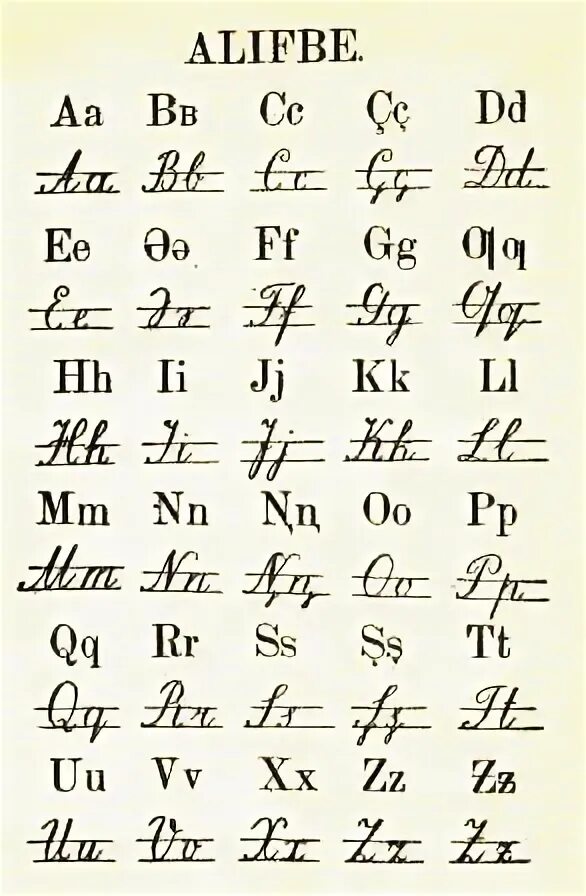 ALIFBE.
Aa Bʙ Cc Çç Dd
Aa Bb Cc Çç Dd
Ee Əə Ff Gg Ƣƣ
Ee Əə Ff Gg Ƣƣ
Hh Ii Jj Kk Ll
Hh Ii Jj Kk Ll
Mm Nn Ꞑꞑ Oo Pp
Mm Nn Ꞑꞑ Oo Pp
Qq Rr Ss Şş Tt
Qq Rr Ss Şş Tt
Uu Vv Xx Zz Ƶƶ
Uu Vv Xx Zz Ƶƶ